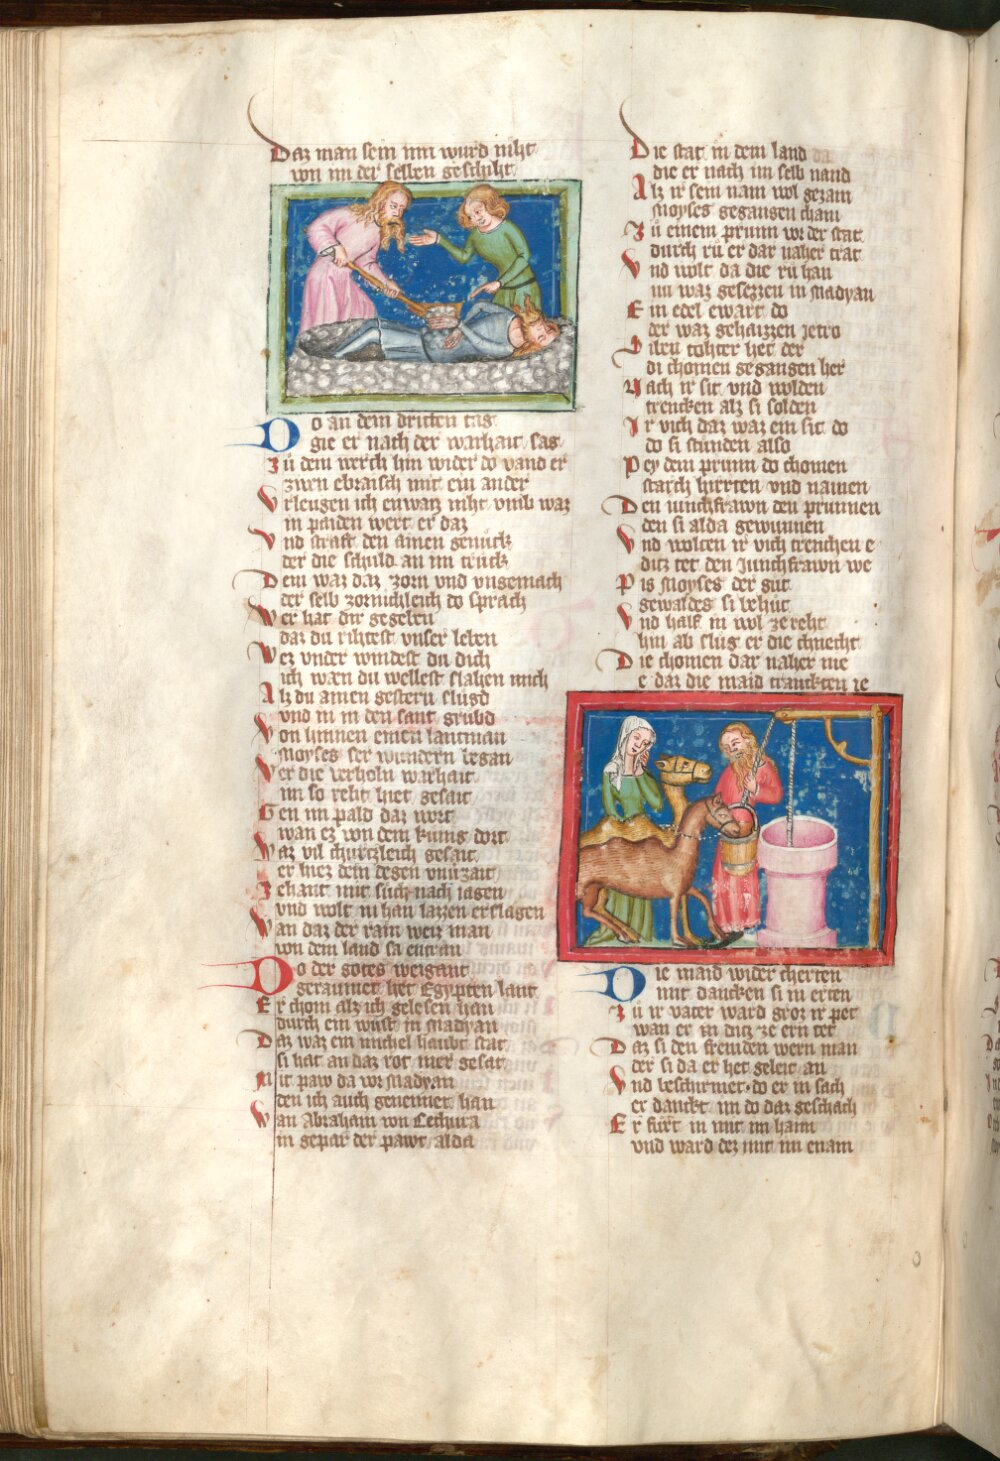 Daz man sein inn wurd niht
von im der selben geschiht
Do an dem dritten tag
gie er nach der warhait sag
Zů dem werch hin wider do vand er
zwen ebraisch mit ein ander
Vrleugen ich enwaiz niht vmb waz
in paiden wert er daz
Vnd straft den ainen genuck
der die schuld an im truck
Dem waz daz zorn vnd vngemach
der selb zornichleich do sprach
Wer hat dir gegeben
daz du rihtest vnser leben
Wez vnder windest du dich
ich wæn du wellest slahen mich
Alz du ainen gestern slugd
vnd in in den sant grubd
Von hinnen einen lantman
Moyses ser wundern began
Wer die verholn warhait
im so reht hiet gesait
Gen im pald daz wort
wan ez von dem kunig dort
Waz vil churtzleich gesait
er hiez dem degen vnuerzait
Zehant mit such nach iagen
vnd wolt in han lazzen erslagen
Wan daz der rain weiz man
von dem land sa entran
Do der gotes weigant
geraumet het Egypten lant
Er chom alz ich gelesen han
durch ein wust in Madyan
Daz waz ein michel haubt stat
si hat an daz rot mer gesat
Mit paw da vor Madyan
den ich auch genennet han
Wan Abraham von Cethura
in gepar der pawt alda
Die stat in dem land
die er nach im selb nand
Alz ir sein nam wol gezam
Moyses gegangen cham
Zů einem prunn vor der stat
durch rů er dar naher trat
Vnd wolt da die rů han
nu waz gesezzen in Madyan
Ein edel ewart do
der waz gehaizzen Jetro
Siben tohter het der
di chomen gegangen her
Nach ir sit vnd wolden
trencken alz si solden
Ir vich daz waz ein sit do
do si stunden also
Pey dem prunn do chomen
starch hierten vnd namen
Den iunchfrawn den prunnen
den si alda gewunnen
Vnd wolten ir vich trenchen e
ditz tet den Junchfrawn we
Pis Moyses der gut
gewaldes si behut
Vnd half in wol ze reht
hin ab slug er die chnecht
Die chomen dar naher nie
e daz die maid tranckten ie
Die maid wider cherten
mit dancken si in erten
Zů ir vater ward groz ir pet
wan er in ditz ze ern tet
Daz si den fremden wern man
der si da er het geleit an
Vnd beschirmet do er in sach
er danckt im do daz geschach
Er furt in mit im haim
vnd ward dez mit im enain